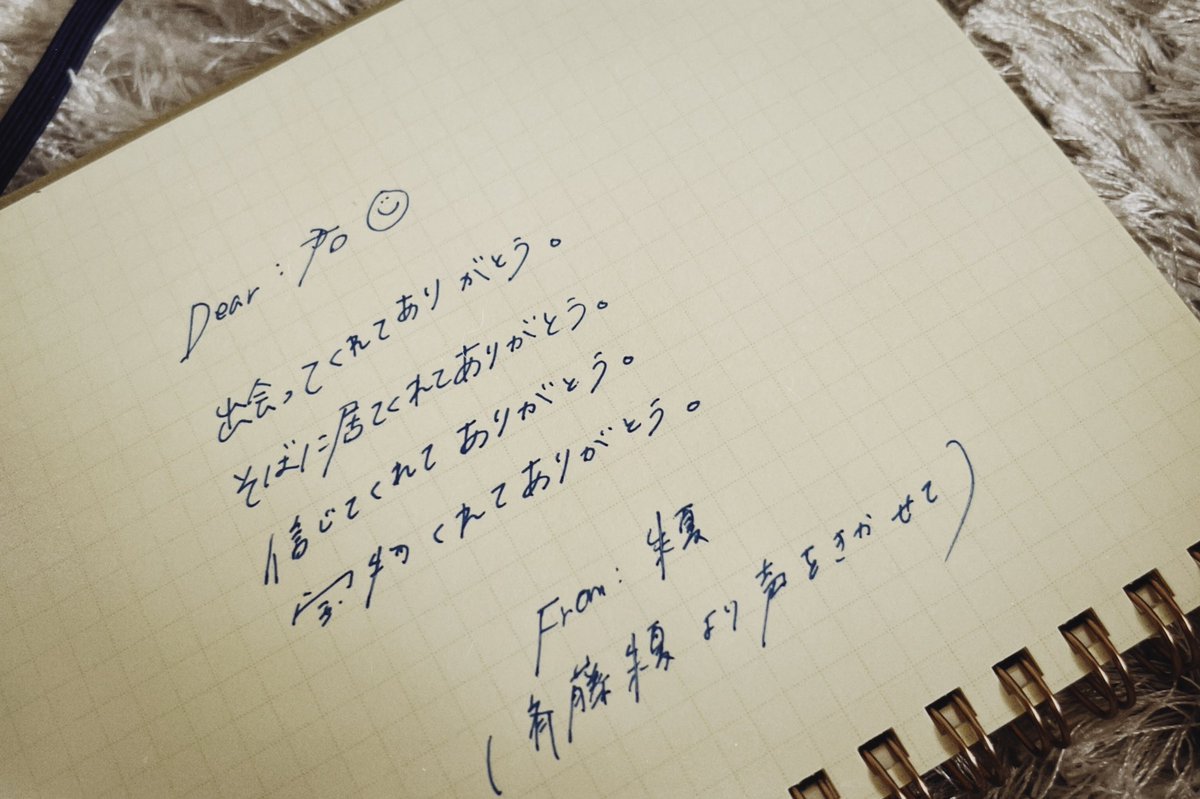 Dear : 君
出会ってくれてありがとう。
そばに居てくれてありがとう。
信じてくれてありがとう。
宝物くれてありがとう。
From : 朱夏
(斉藤朱夏より声をきかせて)